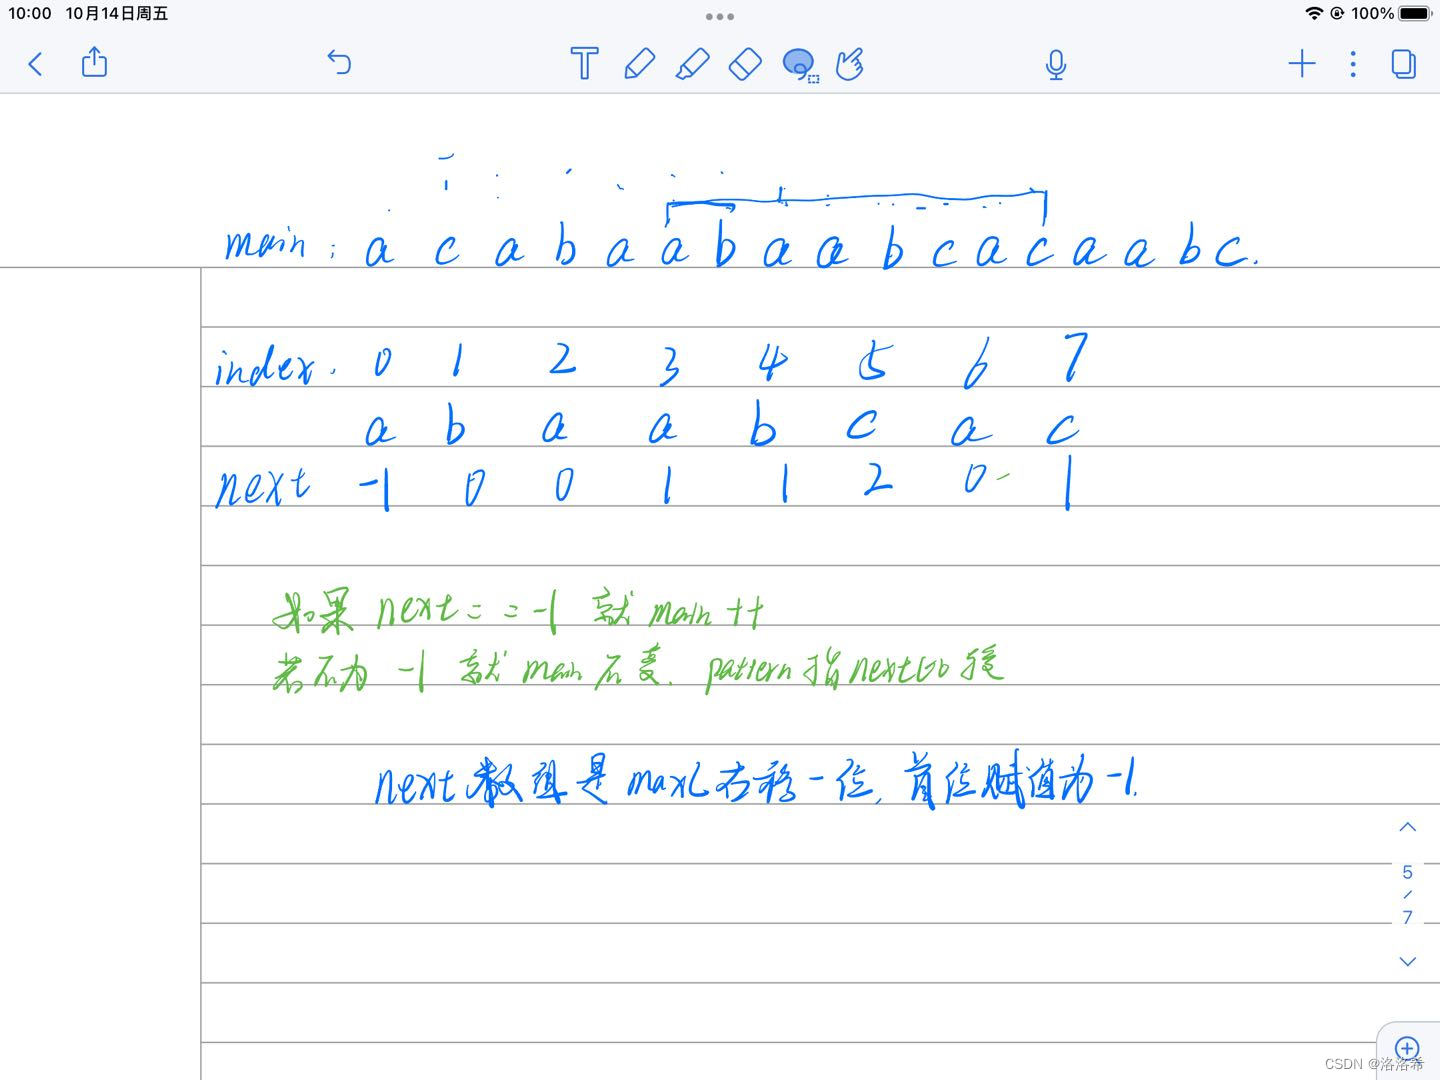 10:00 10月14日周五
100%
main: a c a b a a b a a b c a c a a b c.
index. 0 1 2 3 4 5 6 7
a b a a b c a c
next -1 0 0 1 1 2 0 1
如果 next==-1 就 main ++
若不为 -1 就 main 不变. pattern 指 next[j]
next 数组是 maxL 右移一位, 首位赋值为 -1.
5
/
7
CSDN @洛洛希